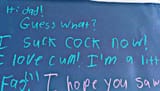 Hi dad!
Guess what?
I suck cock now!
I love cum! I'm a litt
Fag!! I hope you saw